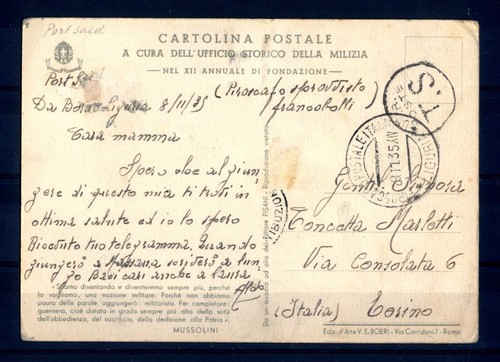 Port said
CARTOLINA POSTALE
A CURA DELL'UFFICIO STORICO DELLA MILIZIA
NEL XII ANNUALE DI FONDAZIONE
Port
(Piroscafo sprovvisto
francobolli
Da Bordo Liguria 8/11/35
Cara mamma
Spero che al giun
gere di questa mia ti trovi in
ottima salute ed io lo spero
Ricevuto tuo telegramma. Quando
giungerò a Massaua scriverò a lun
go Baci cari anche a
Gent. Signora
Concetta Marlotti
Via Consolata 6
(Italia) Torino
"Siamo diventati e diventeremo sempre più, perchè
lo vogliamo, una nazione militare. Poichè non abbiamo
paura delle parole, aggiungerò: militarista. Per completare:
guerriera, cioè dotata in grado sempre più alto della virtù
dell'obbedienza, del sacrificio, della dedizione alla Patria".
MUSSOLINI
Da un quadro ad olio del Pittore PISANI - Riproduzione vietata
Ediz. d'Arte V. E. BOERI - Via Corridoni 7 - Roma
8.11.35.XIV